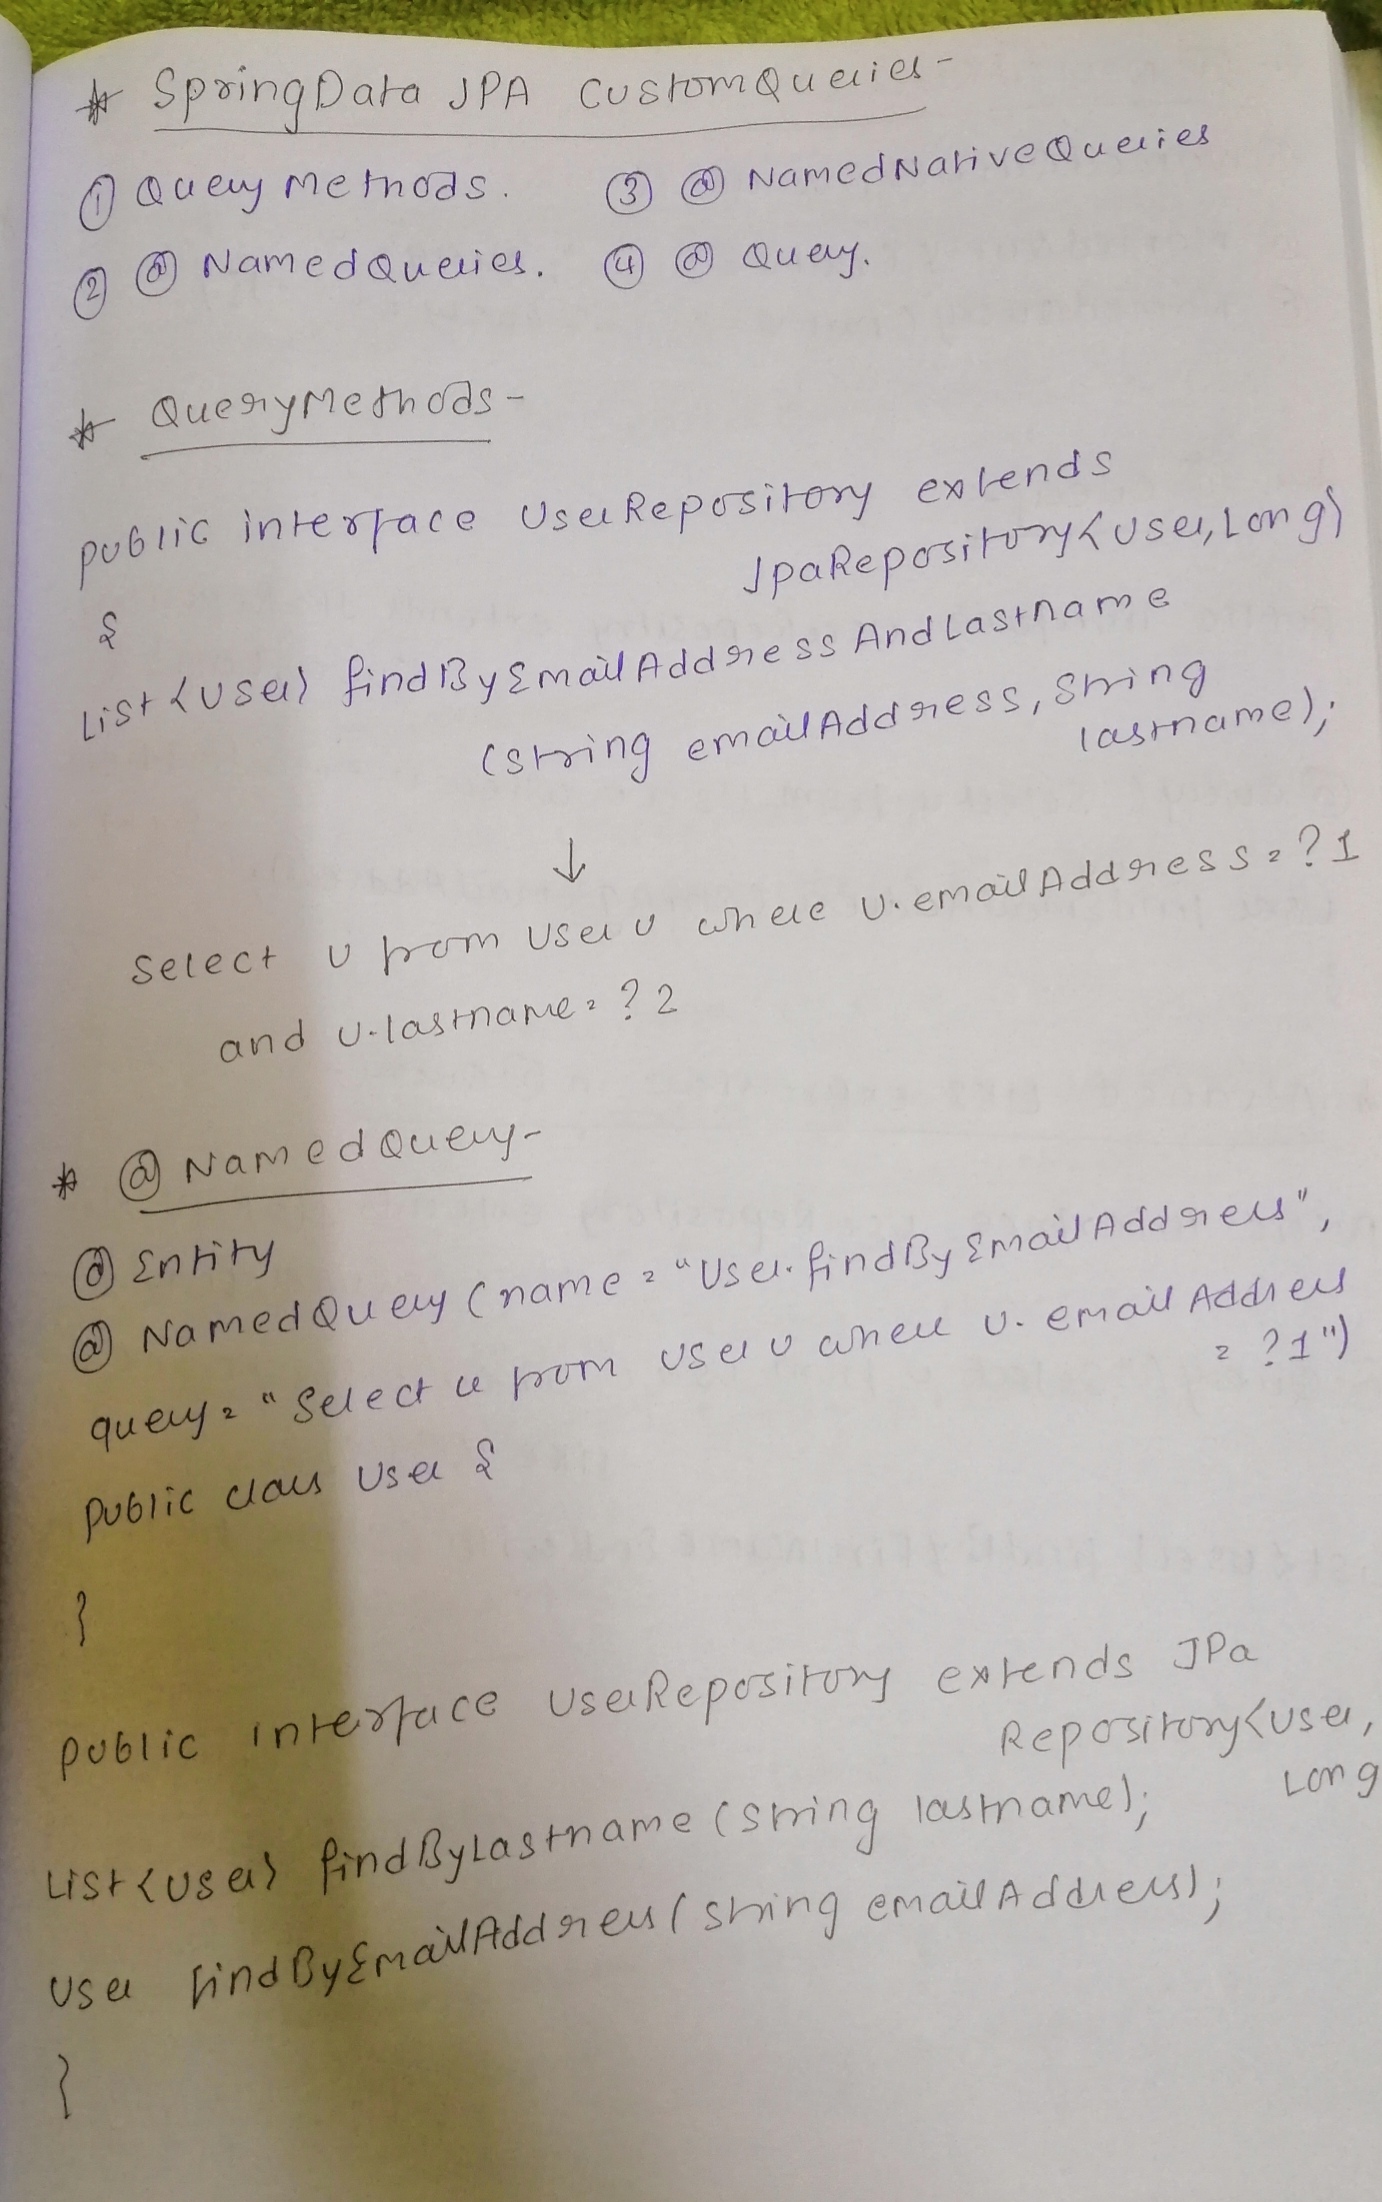 * SpringData JPA CustomQueries -
① Query Methods. ③ @ NamedNativeQueries
② @ NamedQueries. ④ @ Query.
* QueryMethods -
public interface UserRepository extends
JpaRepository<User, Long>
{
List<User> findByEmailAddressAndLastname
(String emailAddress, String
lastname);
↓
Select u from User u where u.emailAddress = ?1
and u.lastname = ?2
* @ NamedQuery -
@ Entity
@ NamedQuery (name = "User.findByEmailAddress",
query = "Select u from User u where u.emailAddress
= ?1")
public class User {
}
public interface UserRepository extends JPa
Repository<User,
Long
List<User> findByLastname (String lastname);
User findByEmailAddress (String emailAddress);
}